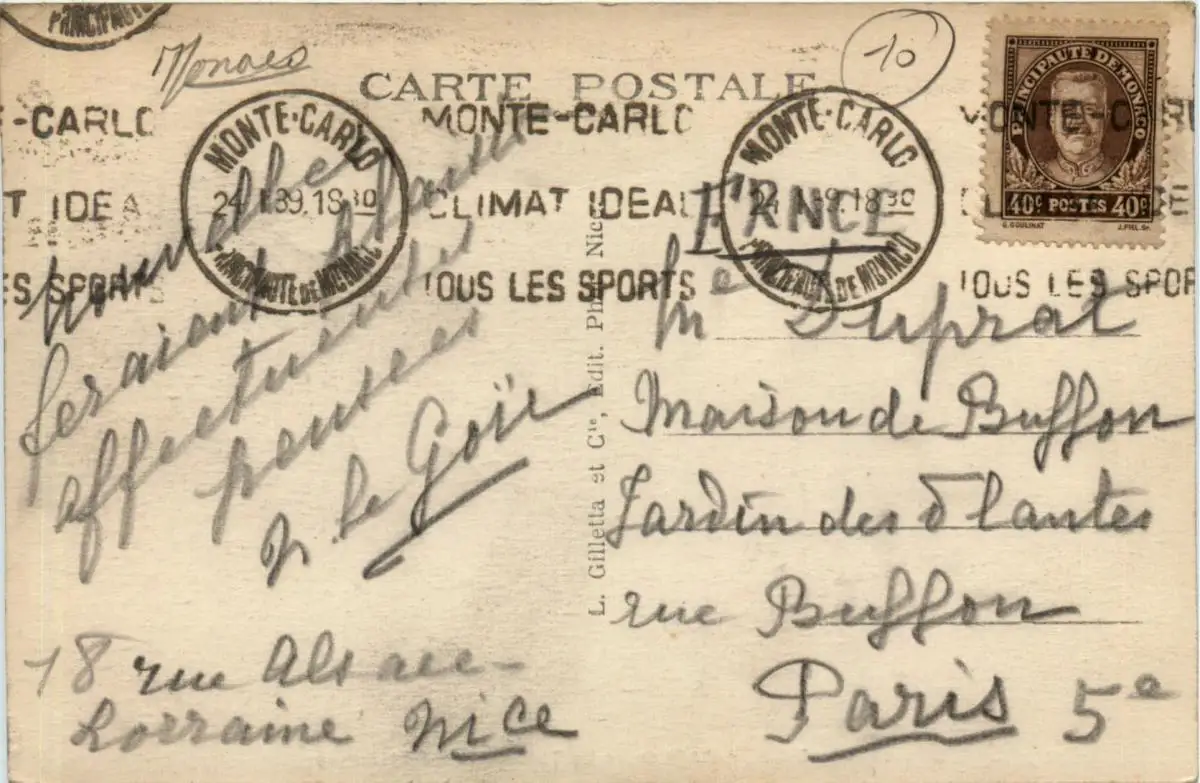 PRINCIPAUTE
Monaco
10
CARTE POSTALE
PRINCIPAUTE DE MONACO
40c POSTES 40c
MONTE-CARLO
24 1 39. 18 30
PRINCIPAUTE DE MONACO
MONTE-CARLO
CLIMAT IDEAL
TOUS LES SPORTS
MONTE-CARLO
24 1 39. 18 30
PRINCIPAUTE DE MONACO
-CARLO
T IDEA
ES SPORTS
MONTE-CARL
TOUS LES SPOR
feraient
affectueuses
pensées
Le Goïc
18 rue Alsace-
Lorraine Nice
L. Gilletta et Cie, Edit. Phot. Nice
FRANCE
Me Duprat
Maison de Buffon
Jardin des Plantes
rue Buffon
Paris 5e